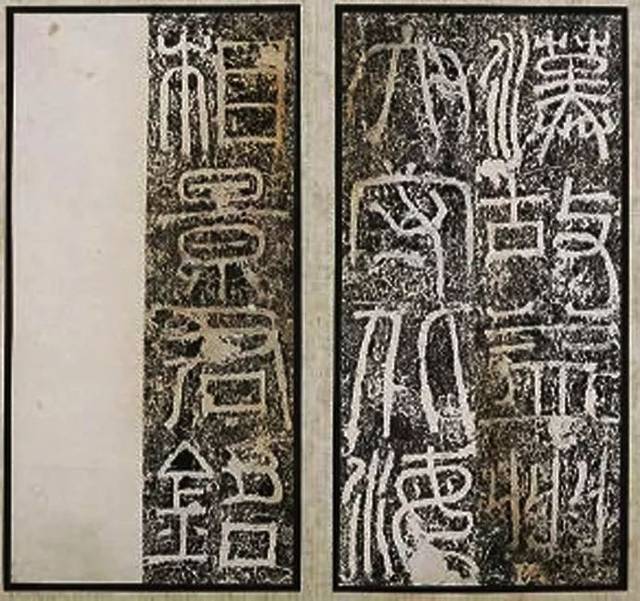 漢故益州
太守北海
相景君銘